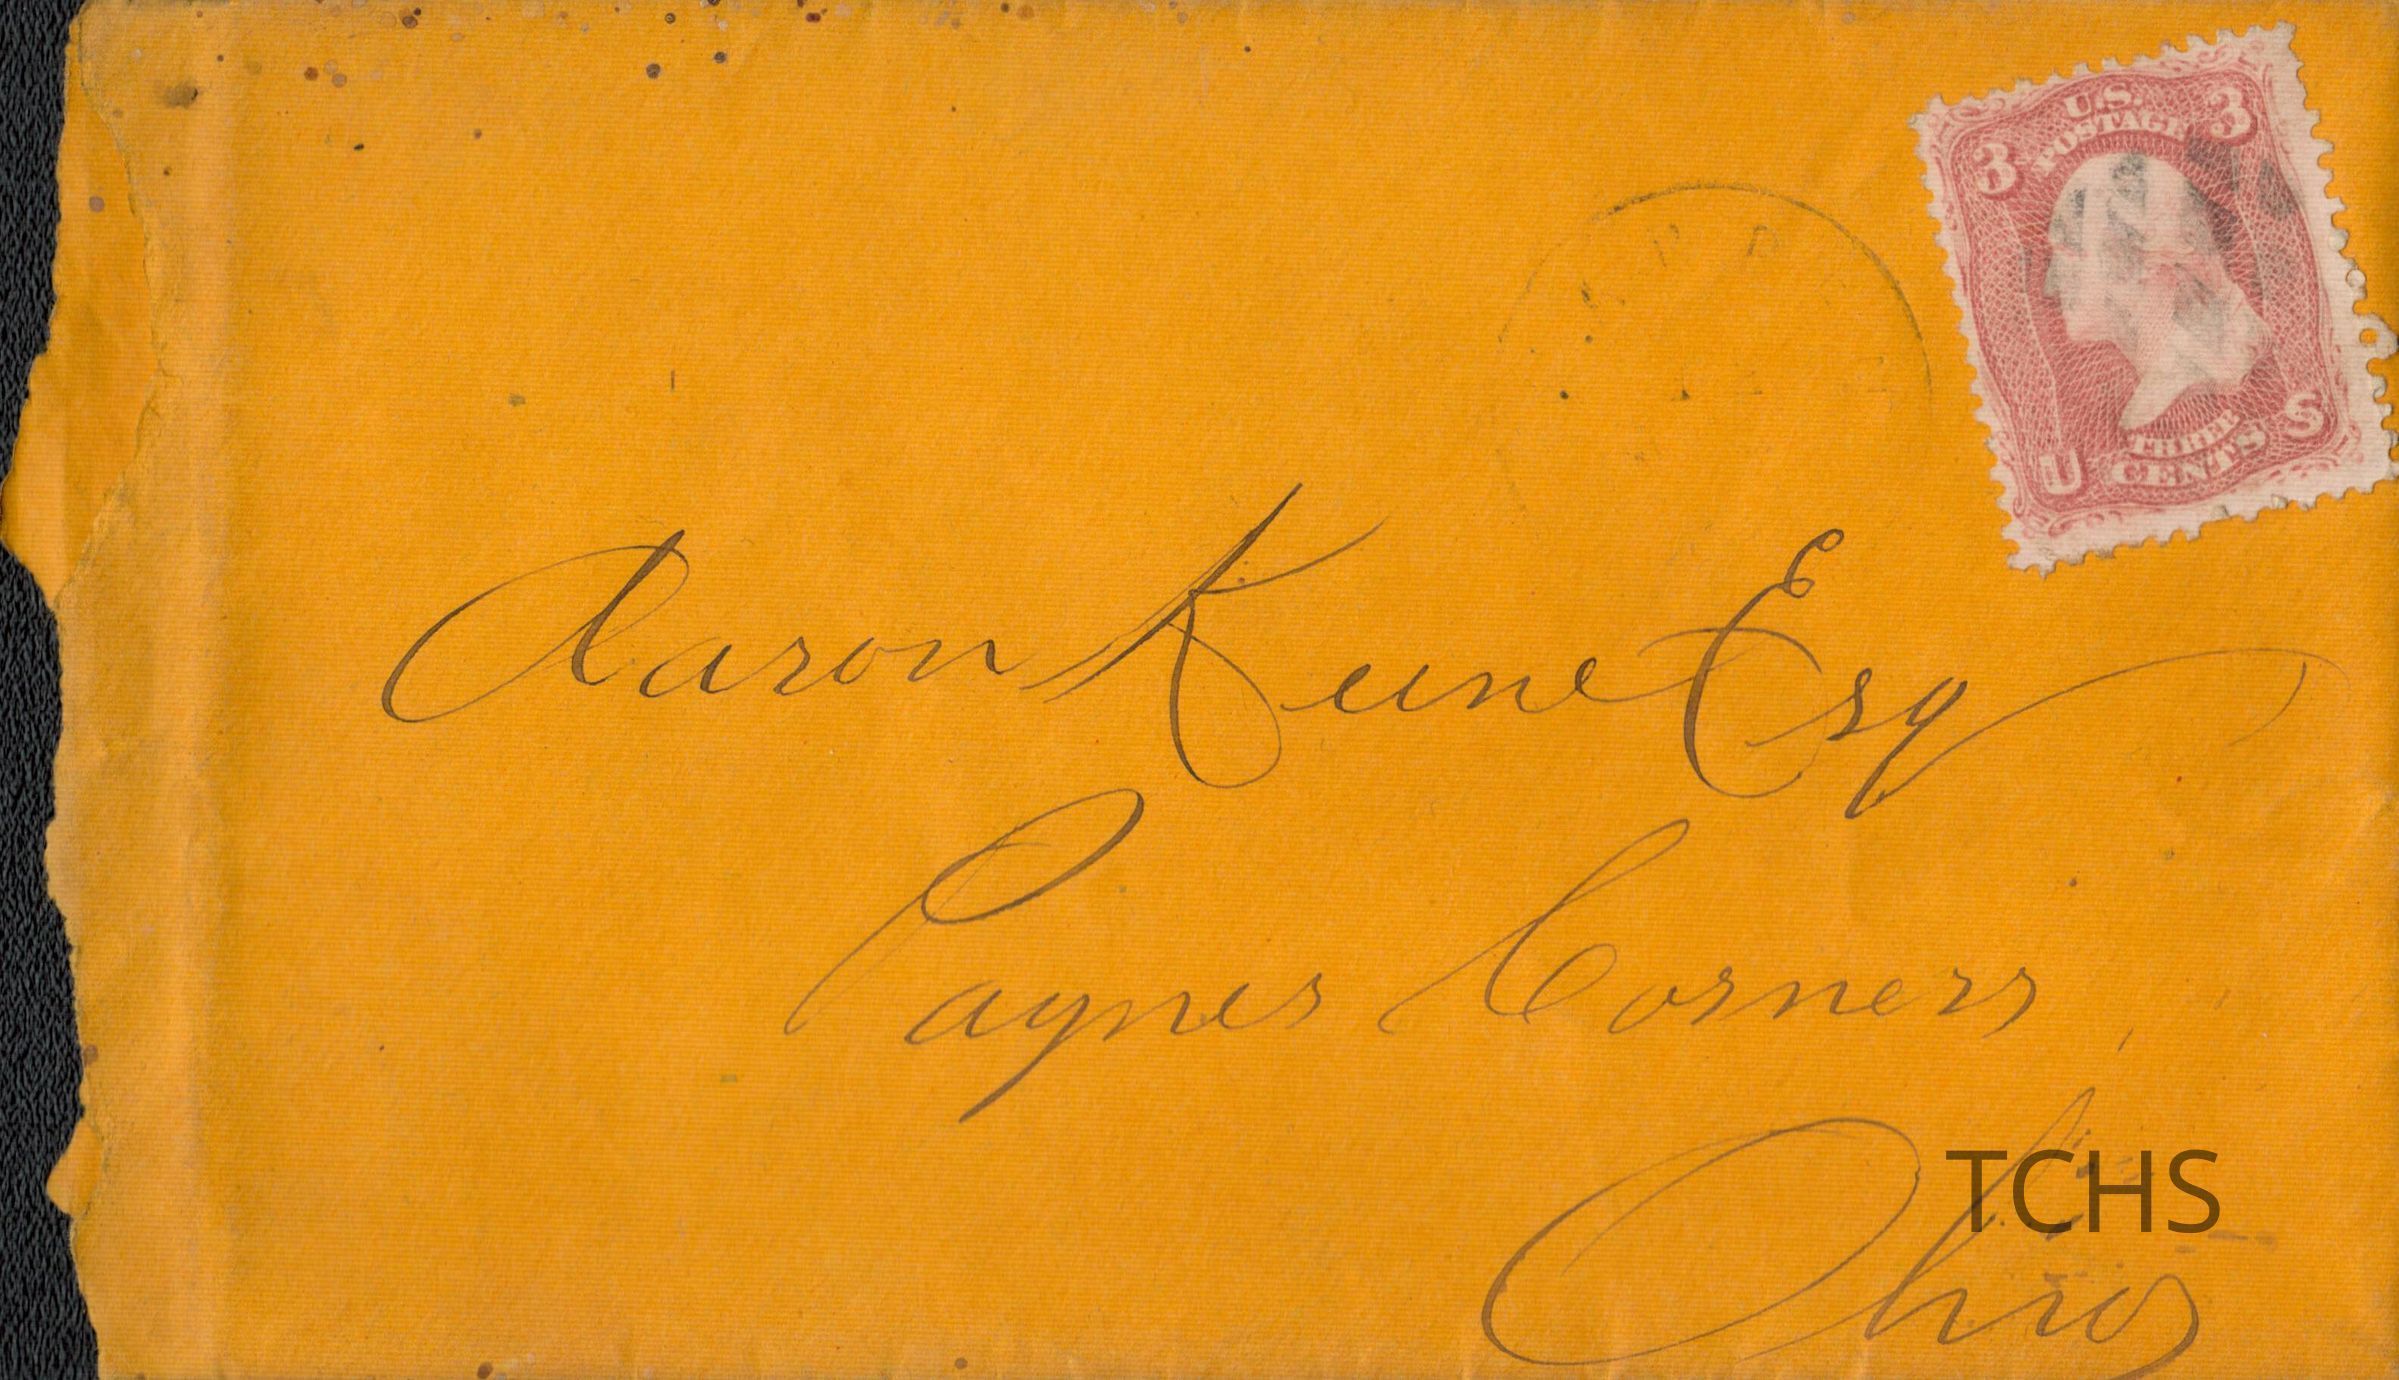 U.S.
POSTAGE
3 3
THREE
CENTS
U S
Aaron Keene Esq
Paynes Corners,
Ohio
TCHS